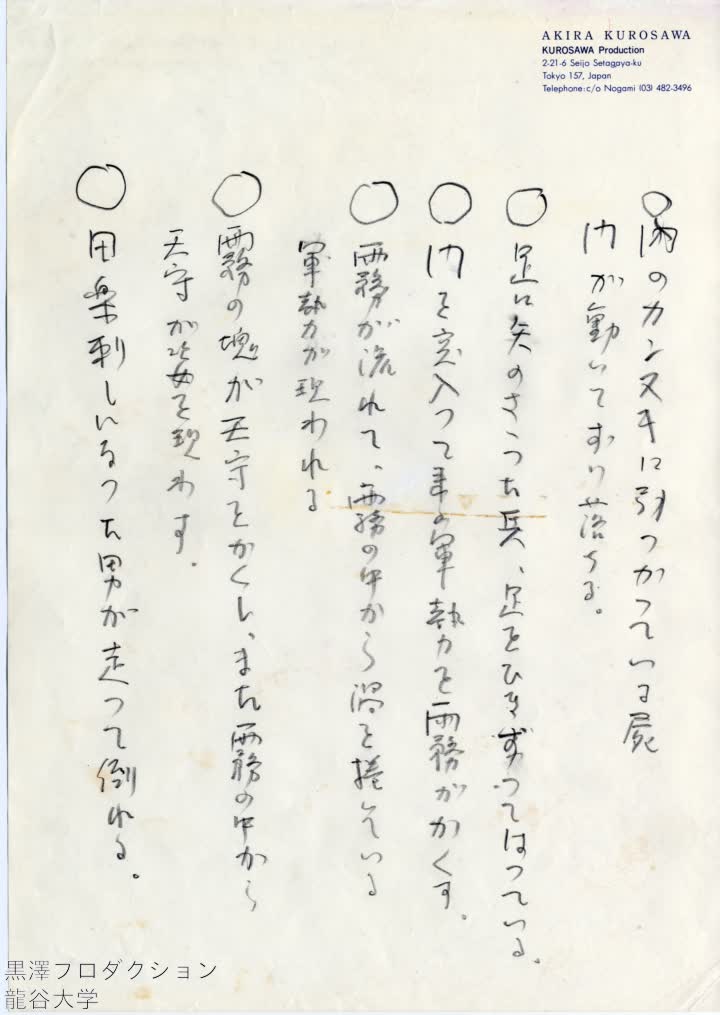 AKIRA KUROSAWA
KUROSAWA Production
2-21-6 Seijo Setagaya-ku
Tokyo 157, Japan
Telephone: c/o Nogami (03) 482-3496
○門のカンヌキに引つかつている屍
門が動いてずり落ちる。
○足に矢のさゝつた兵、足をひきずつてはつている。
○門を突入つて来る軍勢を霧がかくす。
○霧が流れて、霧の中から渦を捲いている
軍勢が現われる
○霧の塊が天守をかくし、また霧の中から
天守が姿を現わす。
○田楽刺しになつた男が走つて倒れる。
黒澤プロダクション
龍谷大学